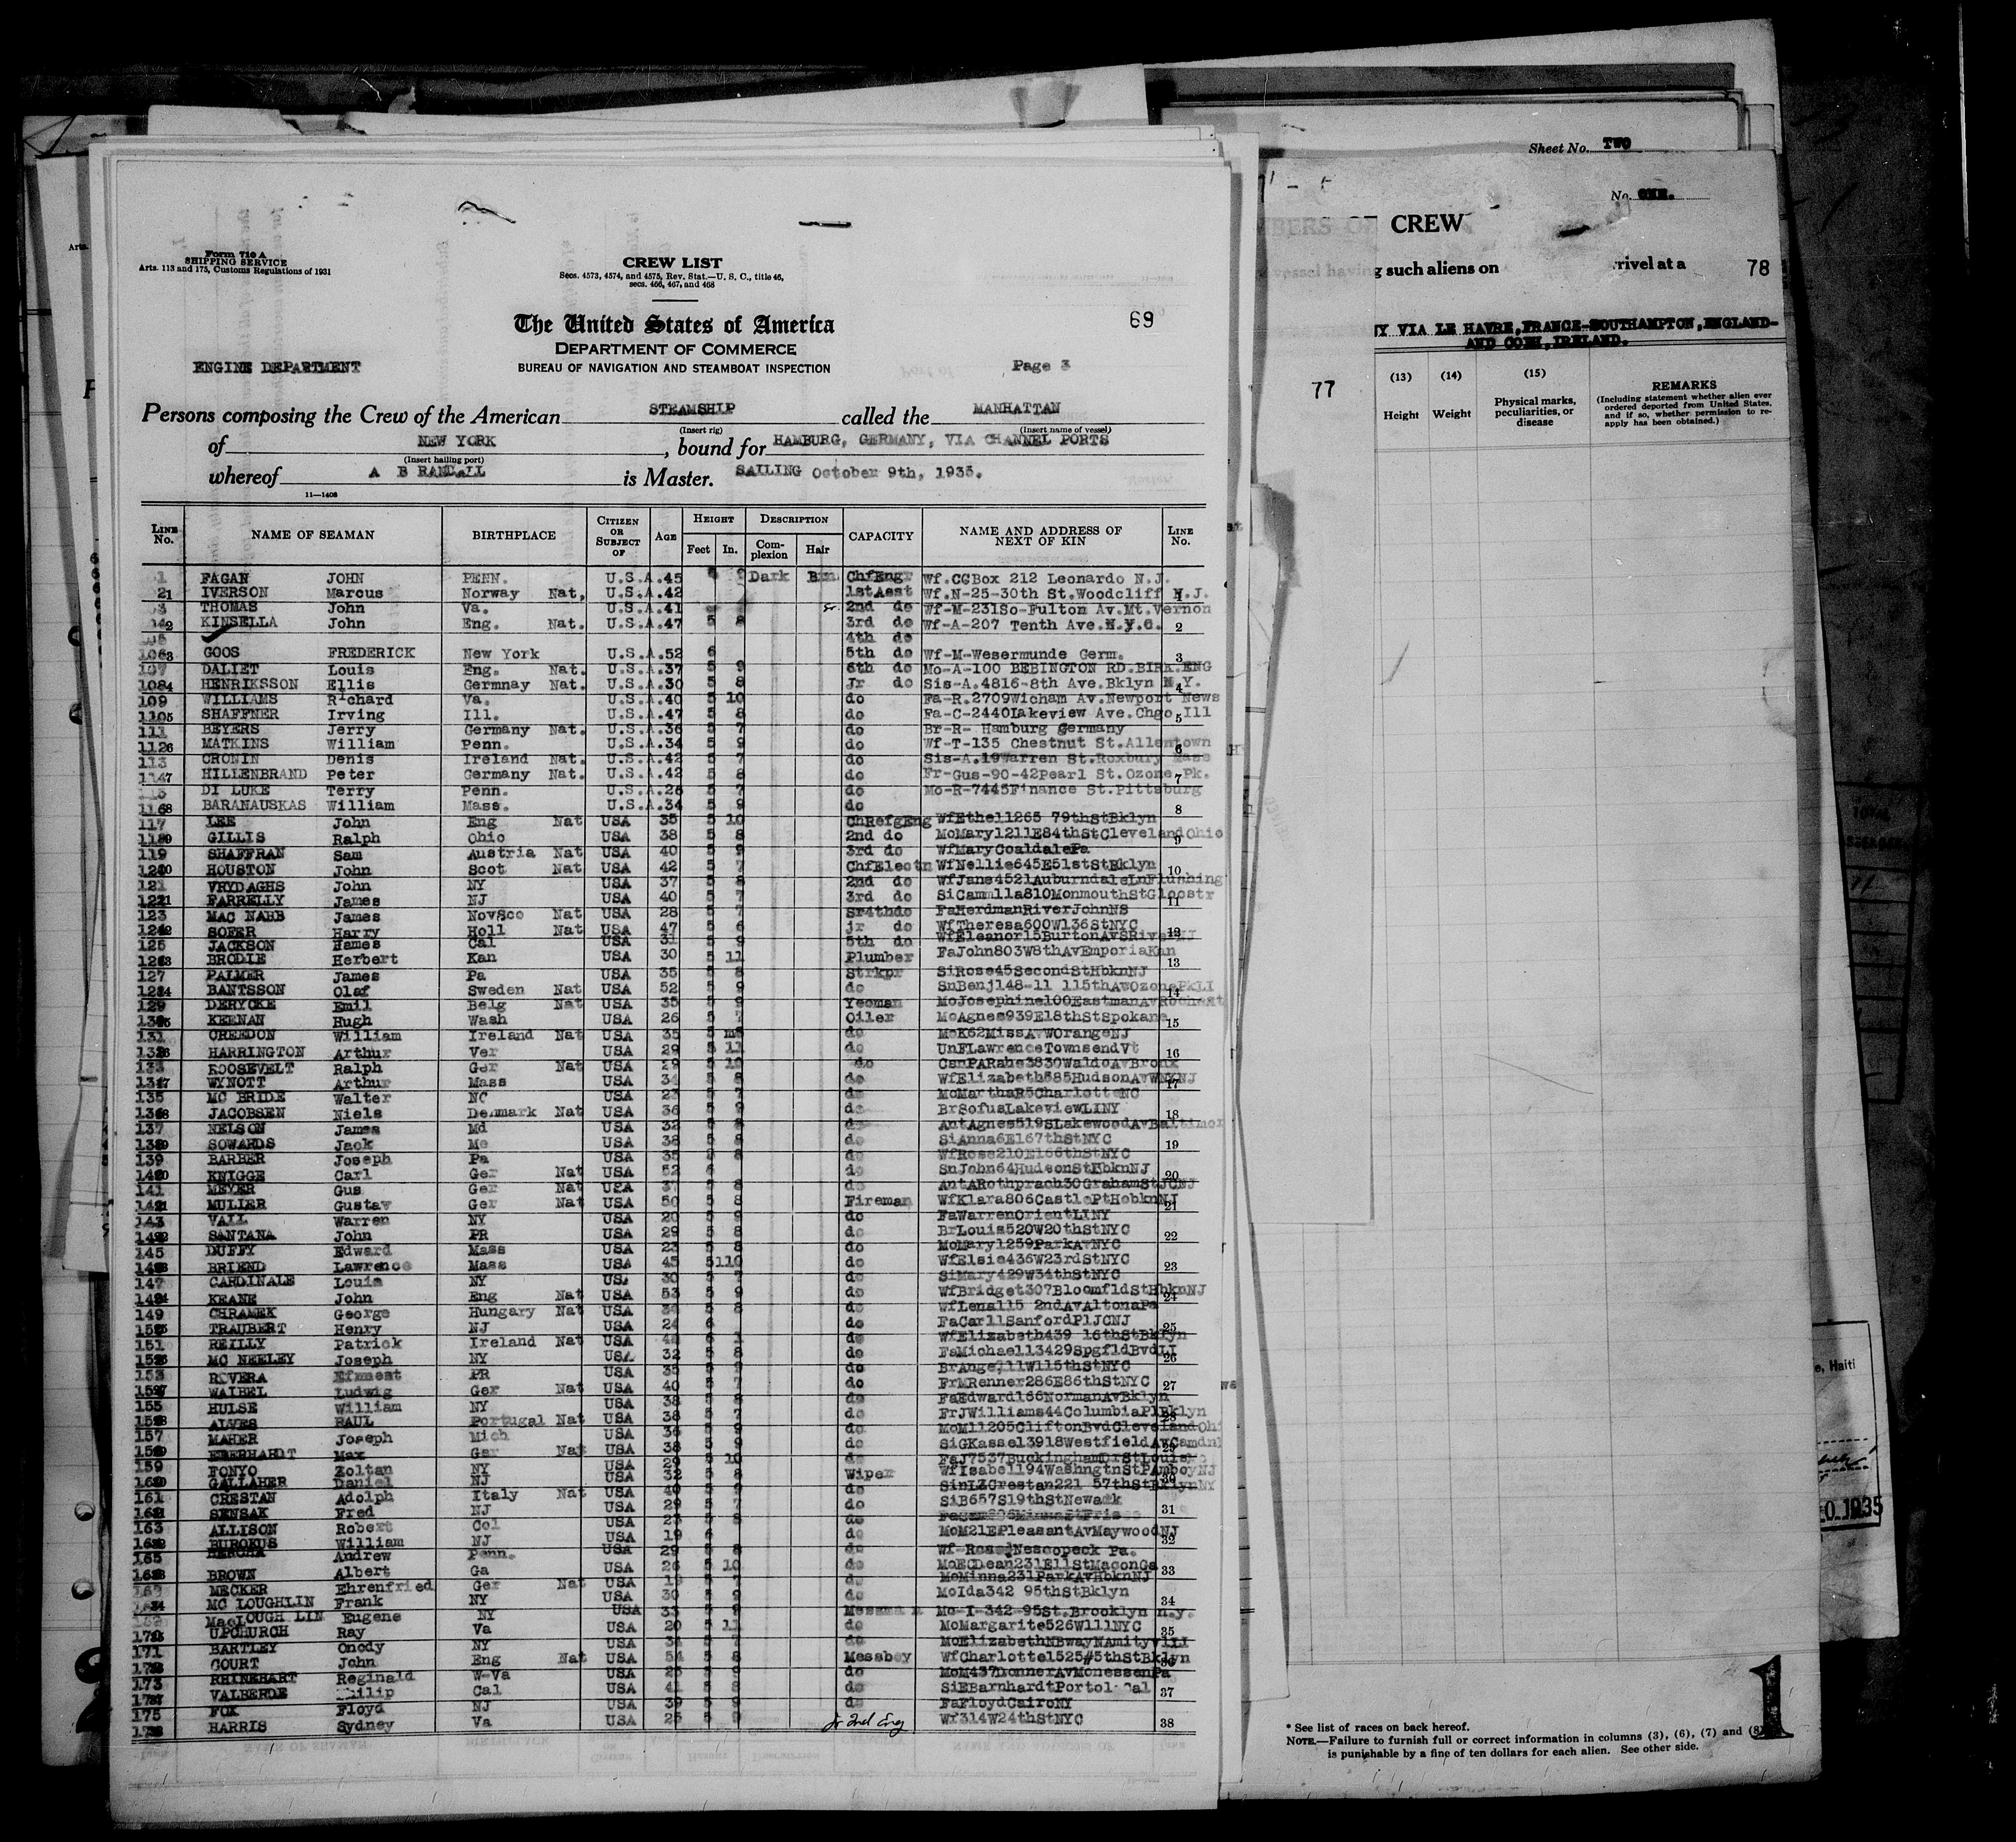 Form 710 A
SHIPPING SERVICE
Arts. 113 and 175, Customs Regulations of 1931
CREW LIST
Secs. 4573, 4574, and 4575, Rev. Stat.—U. S. C., title 46,
secs. 466, 467, and 468
The United States of America
69
DEPARTMENT OF COMMERCE
ENGINE DEPARTMENT
BUREAU OF NAVIGATION AND STEAMBOAT INSPECTION
Page 3
Persons composing the Crew of the American STEAMSHIP called the MANHATTAN
(Insert rig) (Insert name of vessel)
of NEW YORK, bound for HAMBURG, GERMANY, VIA CHANNEL PORTS
(Insert hailing port)
whereof A B RANDALL is Master. SAILING October 9th, 1935.
11—1408
LINE No. NAME OF SEAMAN BIRTHPLACE CITIZEN OR SUBJECT OF AGE HEIGHT Feet In. DESCRIPTION Complexion Hair CAPACITY NAME AND ADDRESS OF NEXT OF KIN LINE No.
1 FAGAN JOHN PENN. U.S.A. 45 9 Dark Brn ChfEngr Wf.CGBox 212 Leonardo N.J.
IVERSON Marcus Norway Nat, U.S.A. 42 1stAsst Wf.N-25-30th St.Woodcliff N.J. 1
THOMAS John Va. U.S.A. 41 Sr. 2nd do Wf-M-231So-Fulton Av.Mt.Vernon
KINSELLA John Eng. Nat. U.S.A. 47 5 8 3rd do Wf-A-207 Tenth Ave.N.Y.C. 2
4th do
GOOS FREDERICK New York U.S.A. 52 6 5th do Wf-M-Wesermunde Germ. 3
107 DALIET Louis Eng. Nat. U.S.A. 37 5 9 6th do Mo-A-100 BEBINGTON RD.BIRK.ENG
108 HENRIKSSON Ellis Germnay Nat. U.S.A. 30 5 8 Jr do Sis-A.4816-8th Ave.Bklyn N.Y. 4
109 WILLIAMS Richard Va. U.S.A. 40 5 10 do Fa-R.2709Wicham Av.Newport News
110 SHAFFNER Irving Ill. U.S.A. 47 5 8 do Fa-C-2440Lakeview Ave.Chgo.Ill 5
111 BEYERS Jerry Germany Nat. U.S.A. 36 5 7 do Br-R- Hamburg Germany
112 MATKINS William Penn. U.S.A. 34 5 9 do Wf-T-135 Chestnut St.Allentown 6
113 CRONIN Denis Ireland Nat. U.S.A. 42 5 7 do Sis-A.19Warren St.Roxbury Mass
114 HILLENBRAND Peter Germany Nat. U.S.A. 42 5 8 do Fr-Gus-90-42Pearl St.Ozone.Pk. 7
115 DI LUKE Terry Penn. U.S.A. 26 5 7 do Mo-R-7445Finance St.Pittsburg
116 BARANAUSKAS William Mass. U.S.A. 34 5 9 do 8
117 LEE John Eng Nat USA 35 5 10 ChRefgEng WfEthel1265 79thStBklyn
118 GILLIS Ralph Ohio USA 38 5 8 2nd do MoMary1211E84thStClevelandOhio 9
119 SHAFFRAN Sam Austria Nat USA 40 5 9 3rd do WfMaryCoaldalePa
120 HOUSTON John Scot Nat USA 42 5 7 ChfElectn WfNellie645E51stStBklyn 10
121 VRYDAGHS John NY USA 37 5 8 2nd do WfJane4521AuburndaleLnFlushing
122 FARRELLY James NJ USA 40 5 7 3rd do SiCamilla810MonmouthStGlocstr 11
123 MAC NABB James NovSco Nat USA 28 5 7 Sr4thdo FaHerdmanRiverJohnNS
124 SOFER Harry Holl Nat USA 47 5 6 jr do WfTheresa600W136StNYC 12
125 JACKSON Hames Cal USA 31 5 9 5th do
126 BRODIE Herbert Kan USA 30 5 11 Plumber FaJohn803W8thAvEmporiaKan 13
127 PALMER James Pa USA 35 5 8 Strkpr SiRose45SecondStHbknNJ
128 BANTSSON Olaf Sweden Nat USA 52 5 9 do SnBenj148-11 115thAvOzonePkLI 14
129 DERYCKE Emil Belg Nat USA 35 5 9 Yeoman MoJosephine100EastmanAvRochest
130 KEENAN Hugh Wash USA 26 5 7 Oiler MoAgnes939E18thStSpokane 15
131 CREEDON William Ireland Nat USA 35 5 do MoK62MissAvWOrangeNJ
132 HARRINGTON Arthur Ver USA 29 5 11 do UnFLawrenceTownsendVt 16
133 ROOSEVELT Ralph Ger Nat USA 29 5 10 do CsnPARahe3830WaldoAvBronx
134 WYNOTT Arthur Mass USA 34 5 8 do WfElizabeth585HudsonAvWNYNJ 17
135 MC BRIDE Walter NC USA 23 5 7 do MoMarthaR5CharlotteNC
136 JACOBSEN Niels Denmark Nat USA 36 5 9 do BrSofusLakeviewLINY 18
137 NELSON James Md USA 32 5 8 do AntAgnes519SLakewoodAvBaltimor
138 SOWARDS Jack Mo USA 38 5 8 do SiAnna6E167thStNYC 19
139 BARBER Joseph Pa USA 35 8 do WfRose210E166thStNYC
140 KNIGGE Carl Ger Nat USA 52 6 do SnJohn64HudsonStHbknNJ 20
141 MEYER Gus Ger Nat USA 37 5 8 do AntARothprach30GrahamStJCNJ
142 MULLER Gustav Ger Nat USA 50 5 8 Fireman WfKlara806CastlePtHobknNJ 21
143 VAIL Warren NY USA 20 5 9 do FaWarrenOrientLINY
144 SANTANA John PR USA 29 5 8 do BrLouis520W20thStNYC 22
145 DUFFY Edward Mass USA 23 5 8 do MoMary1259ParkAvNYC
146 BRIEND Lawrence Mass USA 45 5110 do WfElsie436W23rdStNYC 23
147 CARDINALE Louis NY USA 30 5 7 do SiMary429W34thStNYC
148 KEANE John Eng Nat USA 53 5 9 do WfBridget307BloomfldStHbknNJ 24
149 CHRAMEK George Hungary Nat USA 34 5 8 do WfLena115 2ndAvAltonaPa
150 TRAUBERT Henry NJ USA 24 6 do FaCarl1SanfordPlJCNJ 25
151 REILLY Patrick Ireland Nat USA 6 1 do WfElizabeth439 16thStBklyn
152 MC NEELEY Joseph NY USA 32 5 8 do FaMichael13429SpgfldBvdLI 26
153 RIVERA PR USA 35 5 9 do BrAngel11W115thStNYC
154 WAIBEL Ludwig Ger Nat USA 40 5 7 do FrMRenner286E86thStNYC 27
155 HULSE William NY USA 38 5 8 do FaEdward166NormanAvBklyn
156 ALVES RAUL Portugal Nat USA 38 5 7 do FrJWilliams44ColumbiaPlBklyn 28
157 MAHER Joseph Mich USA 36 5 9 do MoM11205CliftonBvdClevelandOhi
158 EBERHARDT Max Ger Nat USA 38 5 9 do SiGKassel3918WestfieldAvCamdn 29
159 FONYO Zoltan NY USA 29 5 10 do FaJ7537BuckinghamDrStLouis
160 GALLAHER Daniel NJ USA 32 5 8 Wiper WfIsabel194WashngtnStPAmboyNJ 30
161 CRESTAN Adolph Italy Nat USA 40 5 9 do SinLZCrestan221 57thStBklynNY
162 SENSAK Fred NJ USA 29 5 7 do SiB657S19thStNewark 31
163 ALLISON Robert Col USA 23 5 8 do
164 BUROKUS William NJ USA 19 6 do MoM21EPleasantAvMaywoodNJ 32
165 BERCHA Andrew Penn. USA 29 5 8 do Wf-Rose Nescopeck Pa.
BROWN Albert Ga USA 26 5 10 do MoECDean231EllStMaconGa 33
MECKER Ehrenfried Ger Nat USA 5 7 do MoMinna231ParkAvHbknNJ
MC LOUGHLIN Frank NY USA 30 5 9 do MoIda342 95thStBklyn 34
MacLOUGH LIN Eugene NY USA 33 5 9 Mo-I-342-95St.Brooklyn n.y.
170 UPCHURCH Ray Va USA 20 5 11 do MoMargarite526W111NYC 35
171 BARTLEY Onody NY USA 34 5 7 do MoElizabethNBwayNAmityvlLI
COURT John Eng Nat USA 54 5 8 Messboy WfCharlotte1525#5thStBklyn 36
173 RHINEHART Reginald W-Va USA 25 5 9 do MoM437DonnerAvMonessenPa
VALBERDE Philip Cal USA 41 5 8 do SiEBarnhardtPortol Cal 37
175 FOX Floyd NJ USA 39 5 9 do FaFloydCairoNY
HARRIS Sydney Va USA 25 5 9 Jr 2nd Eng Wf314W24thStNYC 38
Sheet No. TWO
No. ONE.
BERS OF CREW
vessel having such aliens on rrivel at a
78
Y VIA LE HAVRE, FRANCE-SOUTHAMPTON, ENGLAND-
AND COBH, IRELAND.
77
(13) Height
(14) Weight
(15) Physical marks, peculiarities, or disease
REMARKS
(Including statement whether alien ever ordered deported from United States, and if so, whether permission to reapply has been obtained.)
TOTAL
e, Haiti
0.1935
1
* See list of races on back hereof.
NOTE.—Failure to furnish full or correct information in columns (3), (6), (7) and (8)
is punishable by a fine of ten dollars for each alien. See other side.